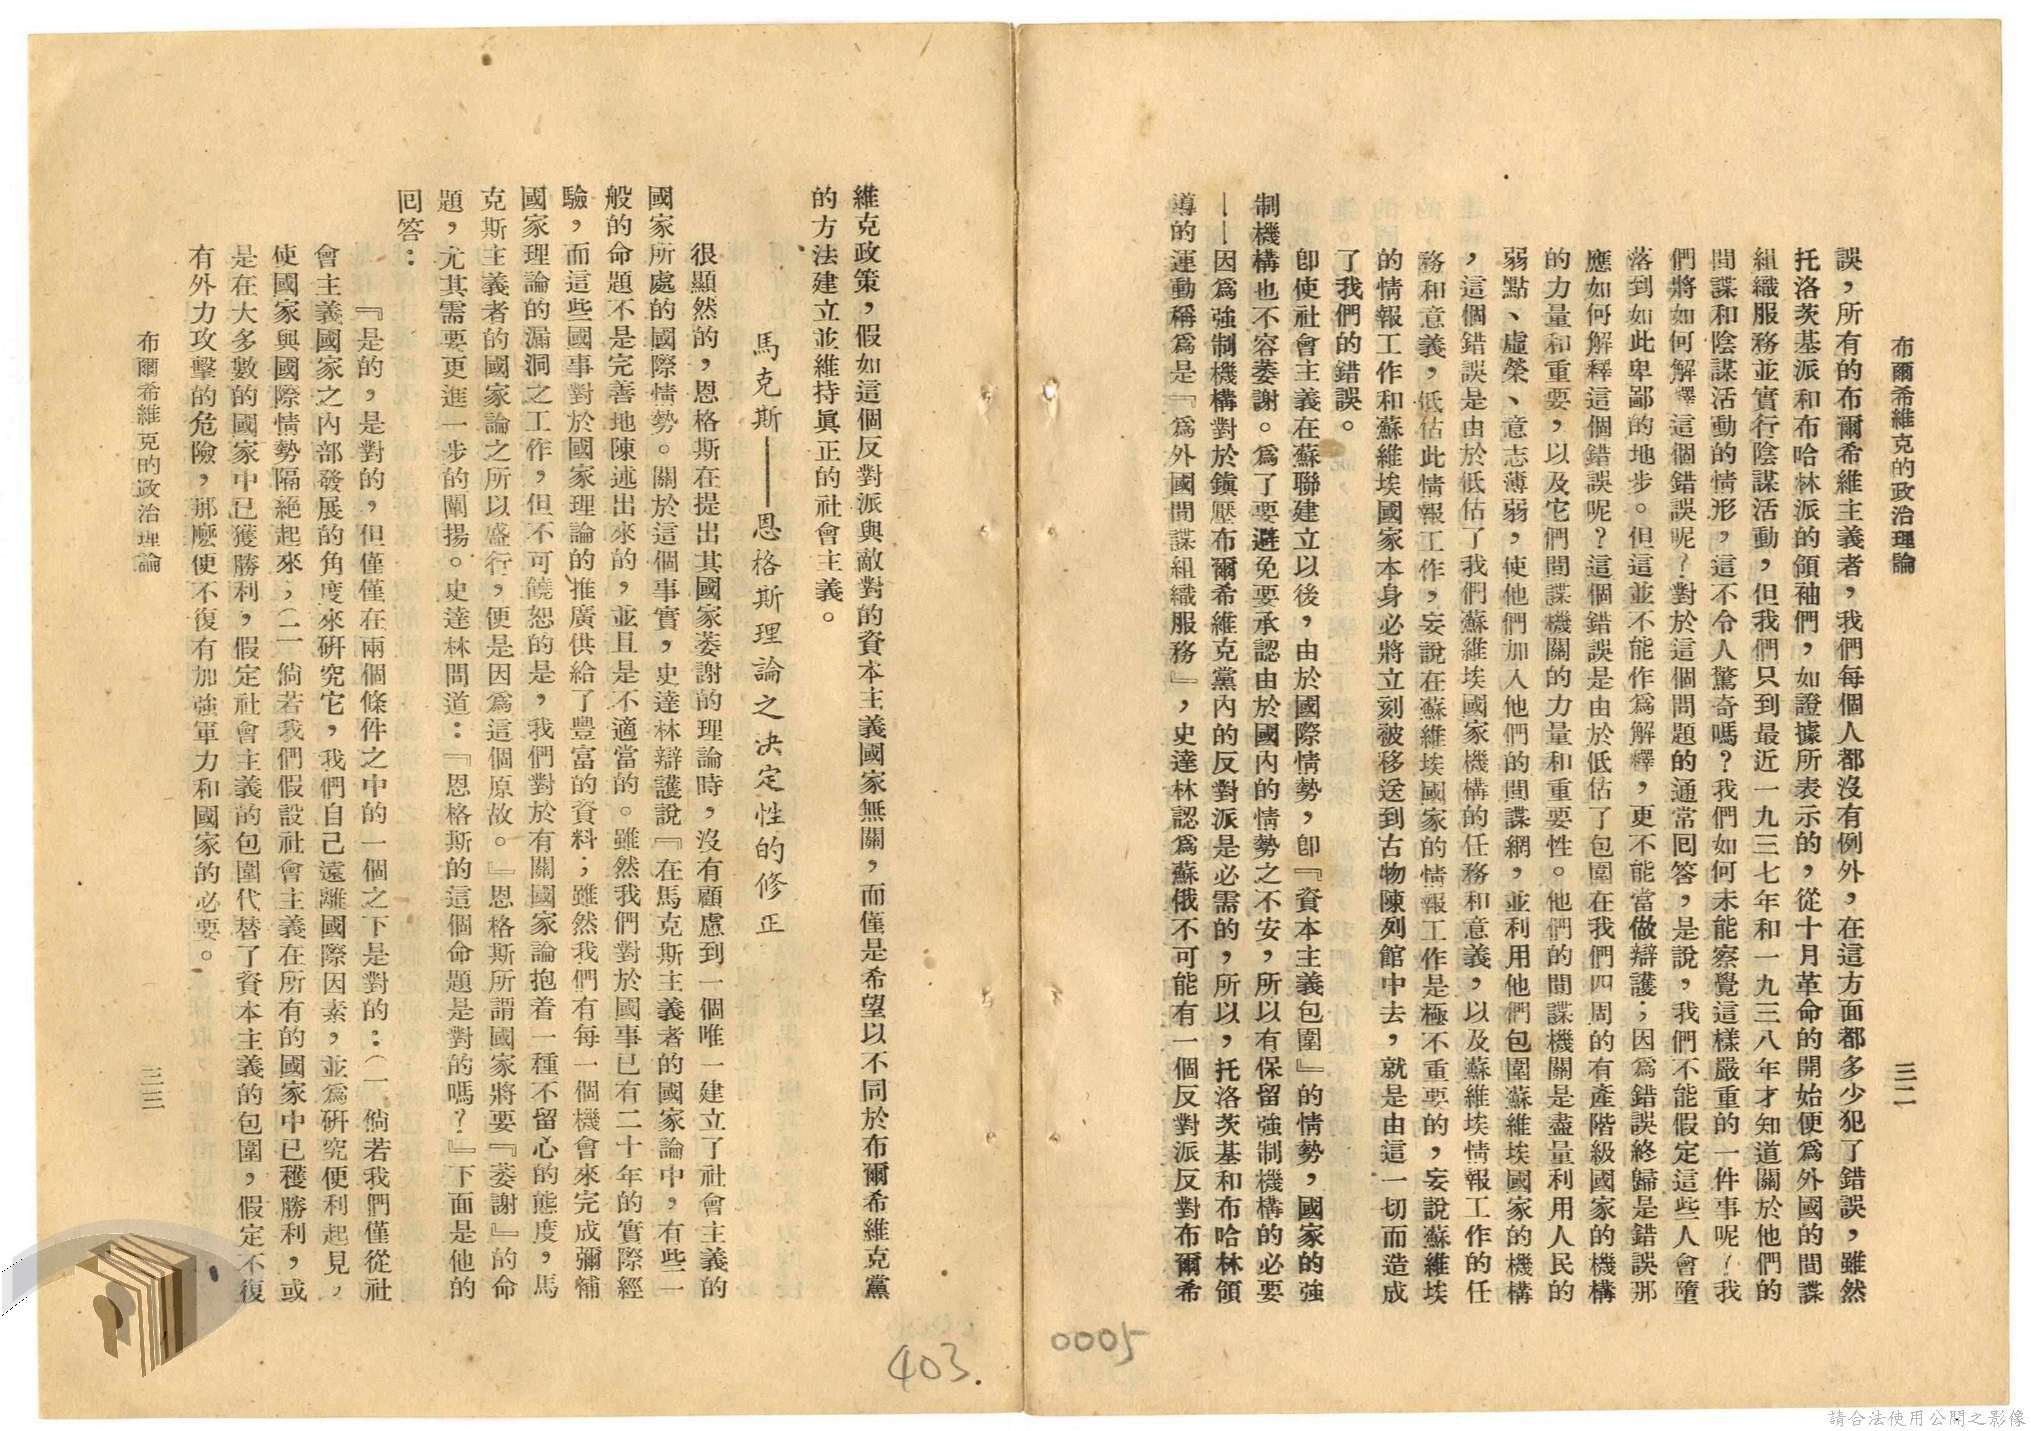 布爾希維克的政治理論
三二
誤，所有的布爾希維主義者，我們每個人都沒有例外，在這方面都多少犯了錯誤，雖然
托洛茨基派和布哈林派的領袖們，如證據所表示的，從十月革命的開始便爲外國的間諜
組織服務並實行陰謀活動，但我們只到最近一九三七年和一九三八年才知道關於他們的
間諜和陰謀活動的情形，這不令人驚奇嗎？我們如何未能察覺這樣嚴重的一件事呢？我
們將如何解釋這個錯誤呢？對於這個問題的通常回答，是說，我們不能假定這些人會墮
落到如此卑鄙的地步。但這並不能作爲解釋，更不能當做辯護；因爲錯誤終歸是錯誤那
應如何解釋這個錯誤呢？這個錯誤是由於低估了包圍在我們四周的有產階級國家的機構
的力量和重要，以及它們間諜機關的力量和重要性。他們的間諜機關是盡量利用人民的
弱點、虛榮、意志薄弱，使他們加入他們的間諜網，並利用他們包圍蘇維埃國家的機構
，這個錯誤是由於低估了我們蘇維埃國家機構的任務和意義，以及蘇維埃情報工作的任
務和意義，低估此情報工作，妄說在蘇維埃國家的情報工作是極不重要的，妄說蘇維埃
的情報工作和蘇維埃國家本身必將立刻被移送到古物陳列館中去，就是由這一切而造成
了我們的錯誤。
卽使社會主義在蘇聯建立以後，由於國際情勢，卽『資本主義包圍』的情勢，國家的強
制機構也不容萎謝。爲了要避免要承認由於國內的情勢之不安，所以有保留強制機構的必要
——因爲強制機構對於鎭壓布爾希維克黨內的反對派是必需的，所以，托洛茨基和布哈林領
導的運動稱爲是『爲外國間諜組織服務』，史達林認爲蘇俄不可能有一個反對派反對布爾希
0005
維克政策，假如這個反對派與敵對的資本主義國家無關，而僅是希望以不同於布爾希維克黨
的方法建立並維持眞正的社會主義。
馬克斯——恩格斯理論之決定性的修正
很顯然的，恩格斯在提出其國家萎謝的理論時，沒有顧慮到一個唯一建立了社會主義的
國家所處的國際情勢。關於這個事實，史達林辯護說『在馬克斯主義者的國家論中，有些一
般的命題不是完善地陳述出來的，並且是不適當的。雖然我們對於國事已有二十年的實際經
驗，而這些國事對於國家理論的推廣供給了豐富的資料；雖然我們有每一個機會來完成彌補
國家理論的漏洞之工作，但不可饒恕的是，我們對於有關國家論抱着一種不留心的態度，馬
克斯主義者的國家論之所以盛行，便是因爲這個原故。』恩格斯所謂國家將要『萎謝』的命
題，尤其需要更進一步的闡揚。史達林問道：『恩格斯的這個命題是對的嗎？』下面是他的
回答：
『是的，是對的，但僅僅在兩個條件之中的一個之下是對的：（一）倘若我們僅從社
會主義國家之內部發展的角度來研究它，我們自己遠離國際因素，並爲研究便利起見，
使國家與國際情勢隔絕起來；（二）倘若我們假設社會主義在所有的國家中已獲勝利，或
是在大多數的國家中已獲勝利，假定社會主義的包圍代替了資本主義的包圍，假定不復
有外力攻擊的危險，那麼便不復有加強軍力和國家的必要。
布爾希維克的政治理論
三三
403.
請合法使用公開之影像